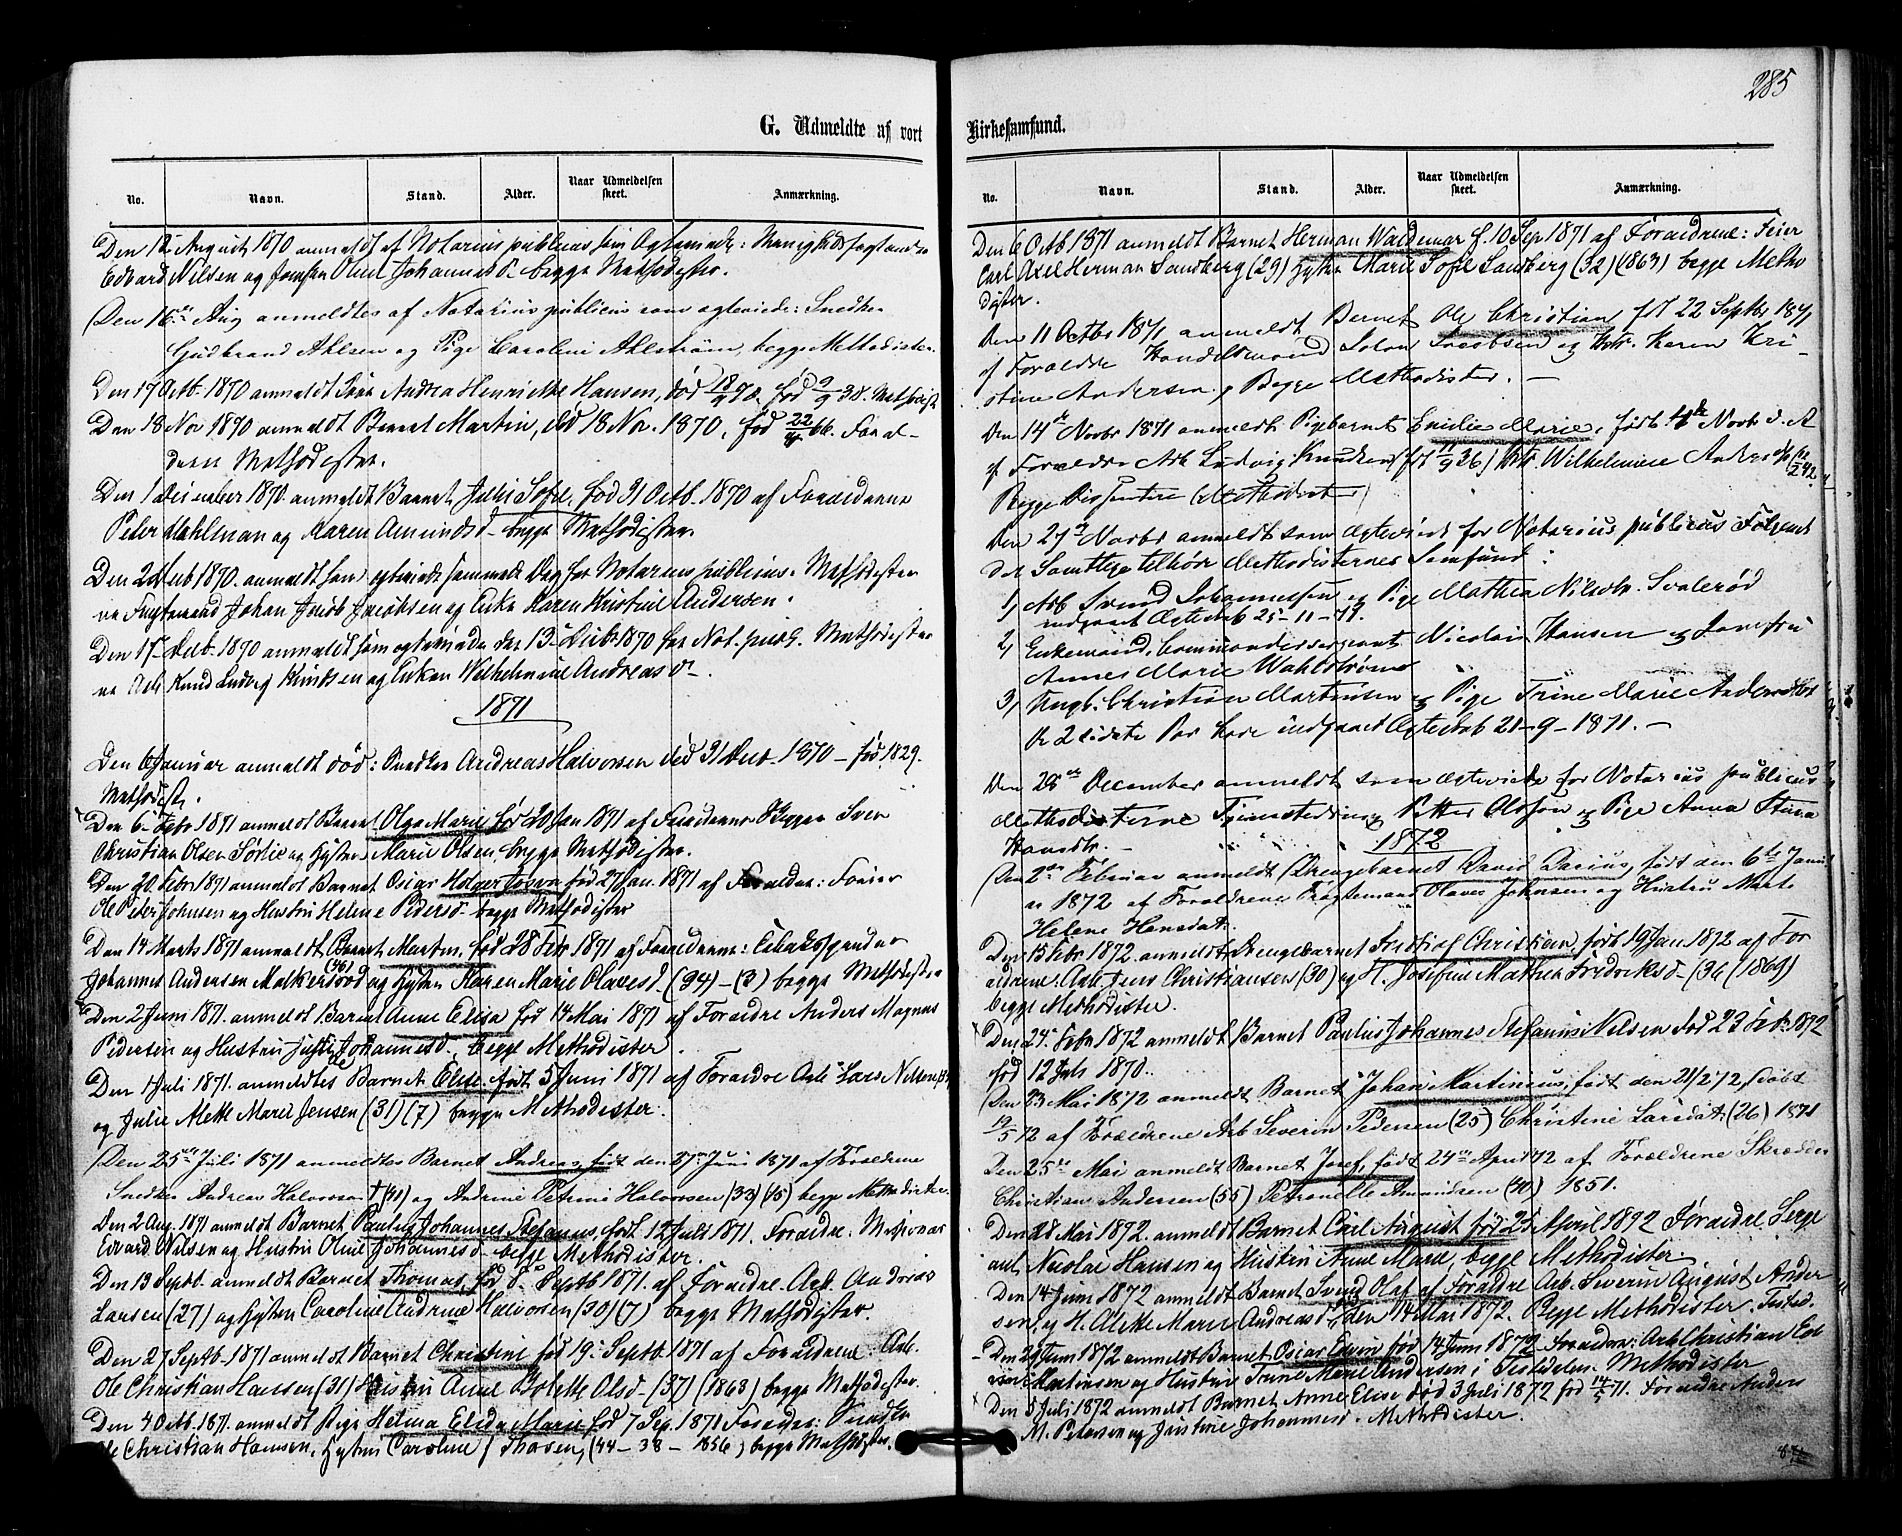 285
G. Udmeldte af vort Kirkesamfund.
No. Navn. Stand. Alder. Naar Udmeldelsen skeet. Anmærkning.
Den 12 August 1870 anmeldt af Notarius publicus som Ægteviede:
Edvard Nilsen og Jomfru Oline Johannesd. begge Methodister.
Den 16de Aug anmeldtes af Notarius publicus som ægteviede: Snedker
Gudbrand Ahlsen og Pige Caroline Ahlstrøm, begge Methodister.
Den 17 Octb. 1870 anmeldt Andrea Henriette Hansen, død 18/9 70, født 9/9 38. Methodist
Den 18 Nov 1870 anmeldt Barnet Martin, død 18 Nov. 1870, født 22/4 66. Foræl-
drene Methodister.
Den 1 December 1870 anmeldt Barnet Julie Sofie, født 31 Octb. 1870 af Forældrene
Peter Wahlman og Karen Amundsd. begge Methodister.
Den 2 Decb 1870 anmeldt som ægteviede samme Dag for Notarius publicus. Methodister
ne Johan Jacob Jacobsen og Enke Karen Kristine Andersen.
Den 17 Decb. 1870 anmeldt som ægteviede den 13 Decbr 1870 for Not. publ. Methodister
ne Arb Knud Ludvig Knudsen og Enken Wilhelmine Andreasd.
1871
Den 6 Januar anmeldt død: Snedker Andreas Halvorsen død 31 Decb. 1870 – født 1829.
Methodist.
Den 6 Febr 1871 anmeldt Barnet Olga Marie født 20 Jan 1871 af Forældrene Skipper Sven
Christian Olsen Sørlie og Hustru Marie Olsen, begge Methodister.
Den 20 Febr 1871 anmeldt Barnet Oscar Holger født 27 Jan. 1871 af Forældre: Feier
Ole Peter Johnsen og Hustru Helene Pedersd. begge Methodister
Den 14 Marts 1871 anmeldt Barnet Martin, født 28 Feb 1871 af Forældrene: Tobakspinder
Johannes Andersen (46) og Hustru Karen Marie Olavesd. (34) – (3) begge Methodister
Den 2 Juni 1871 anmeldt Barnet Anne Elisa født 14 Mai 1871 af Forældre Anders Magnus
Pedersen og Hustru Justine Johannesd. begge Methodister.
Den 1 Juli 1871 anmeldtes Barnet Elise født 5 Juni 1871 af Forældre Arb Lars Nilsen
og Julie Alette Marie Jensen (31) (7) begge Methodister.
Den 25de Juli 1871 anmeldtes Barnet Andreas, født den 27 Juni 1871 af Forældrene
Snedker Andreas Halvorsen † (41) og Andrine Petrine Halvorsen (33) (15) begge Methodister.
Den 2 Aug. 1871 anmeldt Barnet Paulus Johannes Stefanus, født 12 Juli 1871. Forældre: Missionær
Edvard Nilsen og Hustru Oline Johannesd. begge Methodister.
Den 13 Septb. anmeldt Barnet Thomas, født 8 Septb 1871. af Forældre Arb. Andreas
Larsen (27) og Hustru Caroline Andrine Halvorsen (30) (7) begge Methodister.
Den 27 Septb. 1871 anmeldt Barnet Christine født 19 Septb. 1871 af Forældrene Arb.
Ole Christian Hansen (31) Hustru Anne Bolette Olsd. (37) (1863) begge Methodister.
Den 4 Octb. 1871 anmeldt Pige Helma Elida Marie født 7 Sep. 1871 Forældre: Snedker
Ole Christian Hansen, Hustru Caroline f Thosen, (44 – 38 – 1856) begge Methodister.
No. Navn. Stand. Alder. Naar Udmeldelsen skeet. Anmærkning.
Den 6 Octb 1871 anmeldt Barnet Herman Waldemar f. 10 Sep 1871 af Forældrene: Feier
Carl Axel Herman Sandberg (29) Hustru Marie Sofie Sandberg (32) (1863) begge Metho
dister.
Den 11 Octbr 1871 anmeldt Barnet Ole Christian født 22 Septbr 1871
af Forældre Handelsmand Jacobsen og Hstr. Karen Kri-
stine Andersen. Begge Methodister. —
Den 14de Novbr 1871 anmeldt Pigebarnet Emilie Marie, født 4de Novb d. A
af Forældre Arb Ludvig Knudsen (født 11/9 36) Hstr. Wilhelmine
Begge Dissentere (Methodister)
Den 27de Novbr anmeldt som Ægteviede for Notarius publicus Følgende
der Samtlige tilhøre Methodisternes Samfund:
1, Arb Svend Johannessen og Pige Mathea Nilsdtr. Svalerød
indgaaet Ægteskab 25-11-71.
2, Enkemand, Commandersergeant Nicolai Hansen og Jomfru
Annes Marie Wahlstrøm
3, Ungk. Christian Martinsen og Pige Trine Marie
De 2 sidste Par have indgaaet Ægteskab 21-9-1871. —
Den 28de December anmeldt som Ægteviede for Notarius publicus
Methodisterne Petter Olsson og Pige Anna Stina
Hansdtr. —
1872
Den 2den Februar anmeldt Drengebarnet David Darius, født den 6te Janu
ar 1872 af Forældrene Fragtemand Olaves Johnsen og Hustru Marte
Helene Hansdat.
Den 15 Febr 1872 anmeldt Drengebarnet Christian, født 19 Jan. 1872 af For
ældrene Arb. Jens Christiansen (30) og H. Josefine Mathea Fredriksd. (36 (1869)
begge Methodister.
Den 24 Febr 1872 anmeldt Barnet Paulus Johannes Stefanus Nilsen død 23 Feb. 1872
født 12 Juli 1870.
Den 23 Mai 1872 anmeldt Barnet Johan Martinius, født den 21/2 72, døbt
19/5 72 af Forældrene Arb Severin Pedersen (25) Christine Larsdat. (26) 1871
Den 25de Mai anmeldt Barnet Josef, født 24de April 72 af Forældrene Skræder
Christian Andersen (55) Petronelle Amundsen (40) 1851.
Den 28 Mai 1872. anmeldt Barnet Carl August født 21 April 1872 Forældre Serge
ant Nicolai Hansen og Hustru Anne Marie, begge Methodister.
Den 14 Juni 1872 anmeldt Barnet Svend Olaf af Forældre Arb. Severin August Ander
sen, og H. Alette Marie Andreasd. født den 14 Mai 1872. Begge Methodister. Tistedalen.
Den 29 Juni 1872 anmeldt Barnet Oscar Edvin født 14 Juni 1872 Forældre: Arb Christian Ed
vard Martinsen og Hustru Trine Marie Andersen i Tistedalen. Methodister
Den 5 Juli 1872 anmeldt Barnet Anne Elise død 3 Juli 1872 født 14/5 71. Forældre Anders
M. Petersen og Justine Johannesd. Methodister.